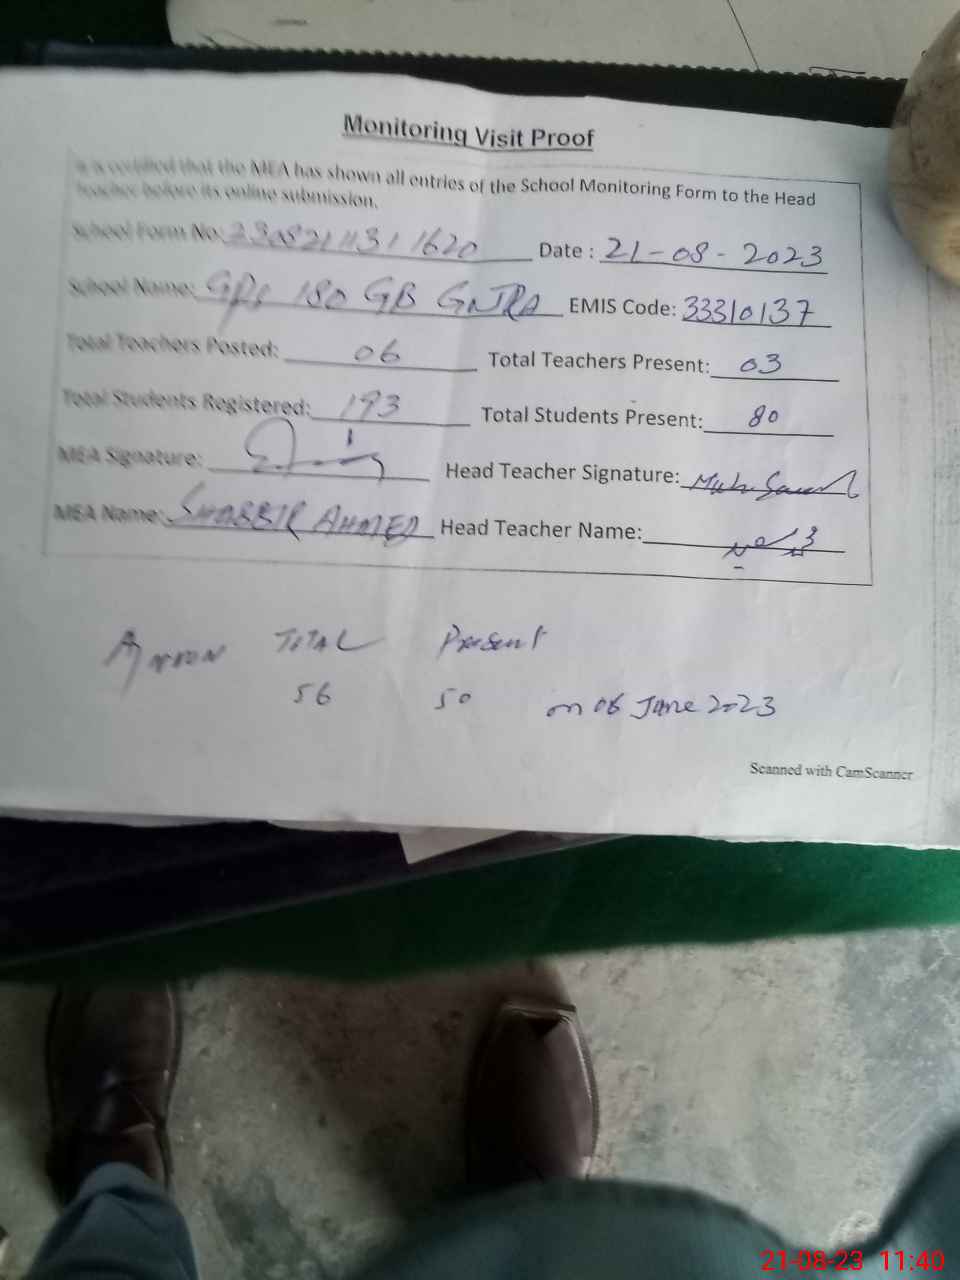 Monitoring Visit Proof
It is certified that the MEA has shown all entries of the School Monitoring Form to the Head
teacher before its online submission.
School Form No: 23082111311620 Date : 21-08-2023
School Name: GPS 180 GB GNJRA EMIS Code: 33310137
Total Teachers Posted: 06 Total Teachers Present: 03
Total Students Registered: 193 Total Students Present: 80
MEA Signature: Head Teacher Signature:
MEA Name: SHABBIR AHMED Head Teacher Name:
TOTAL Present
56 50 on 06 June 2023
Scanned with CamScanner
21-08-23 11:40